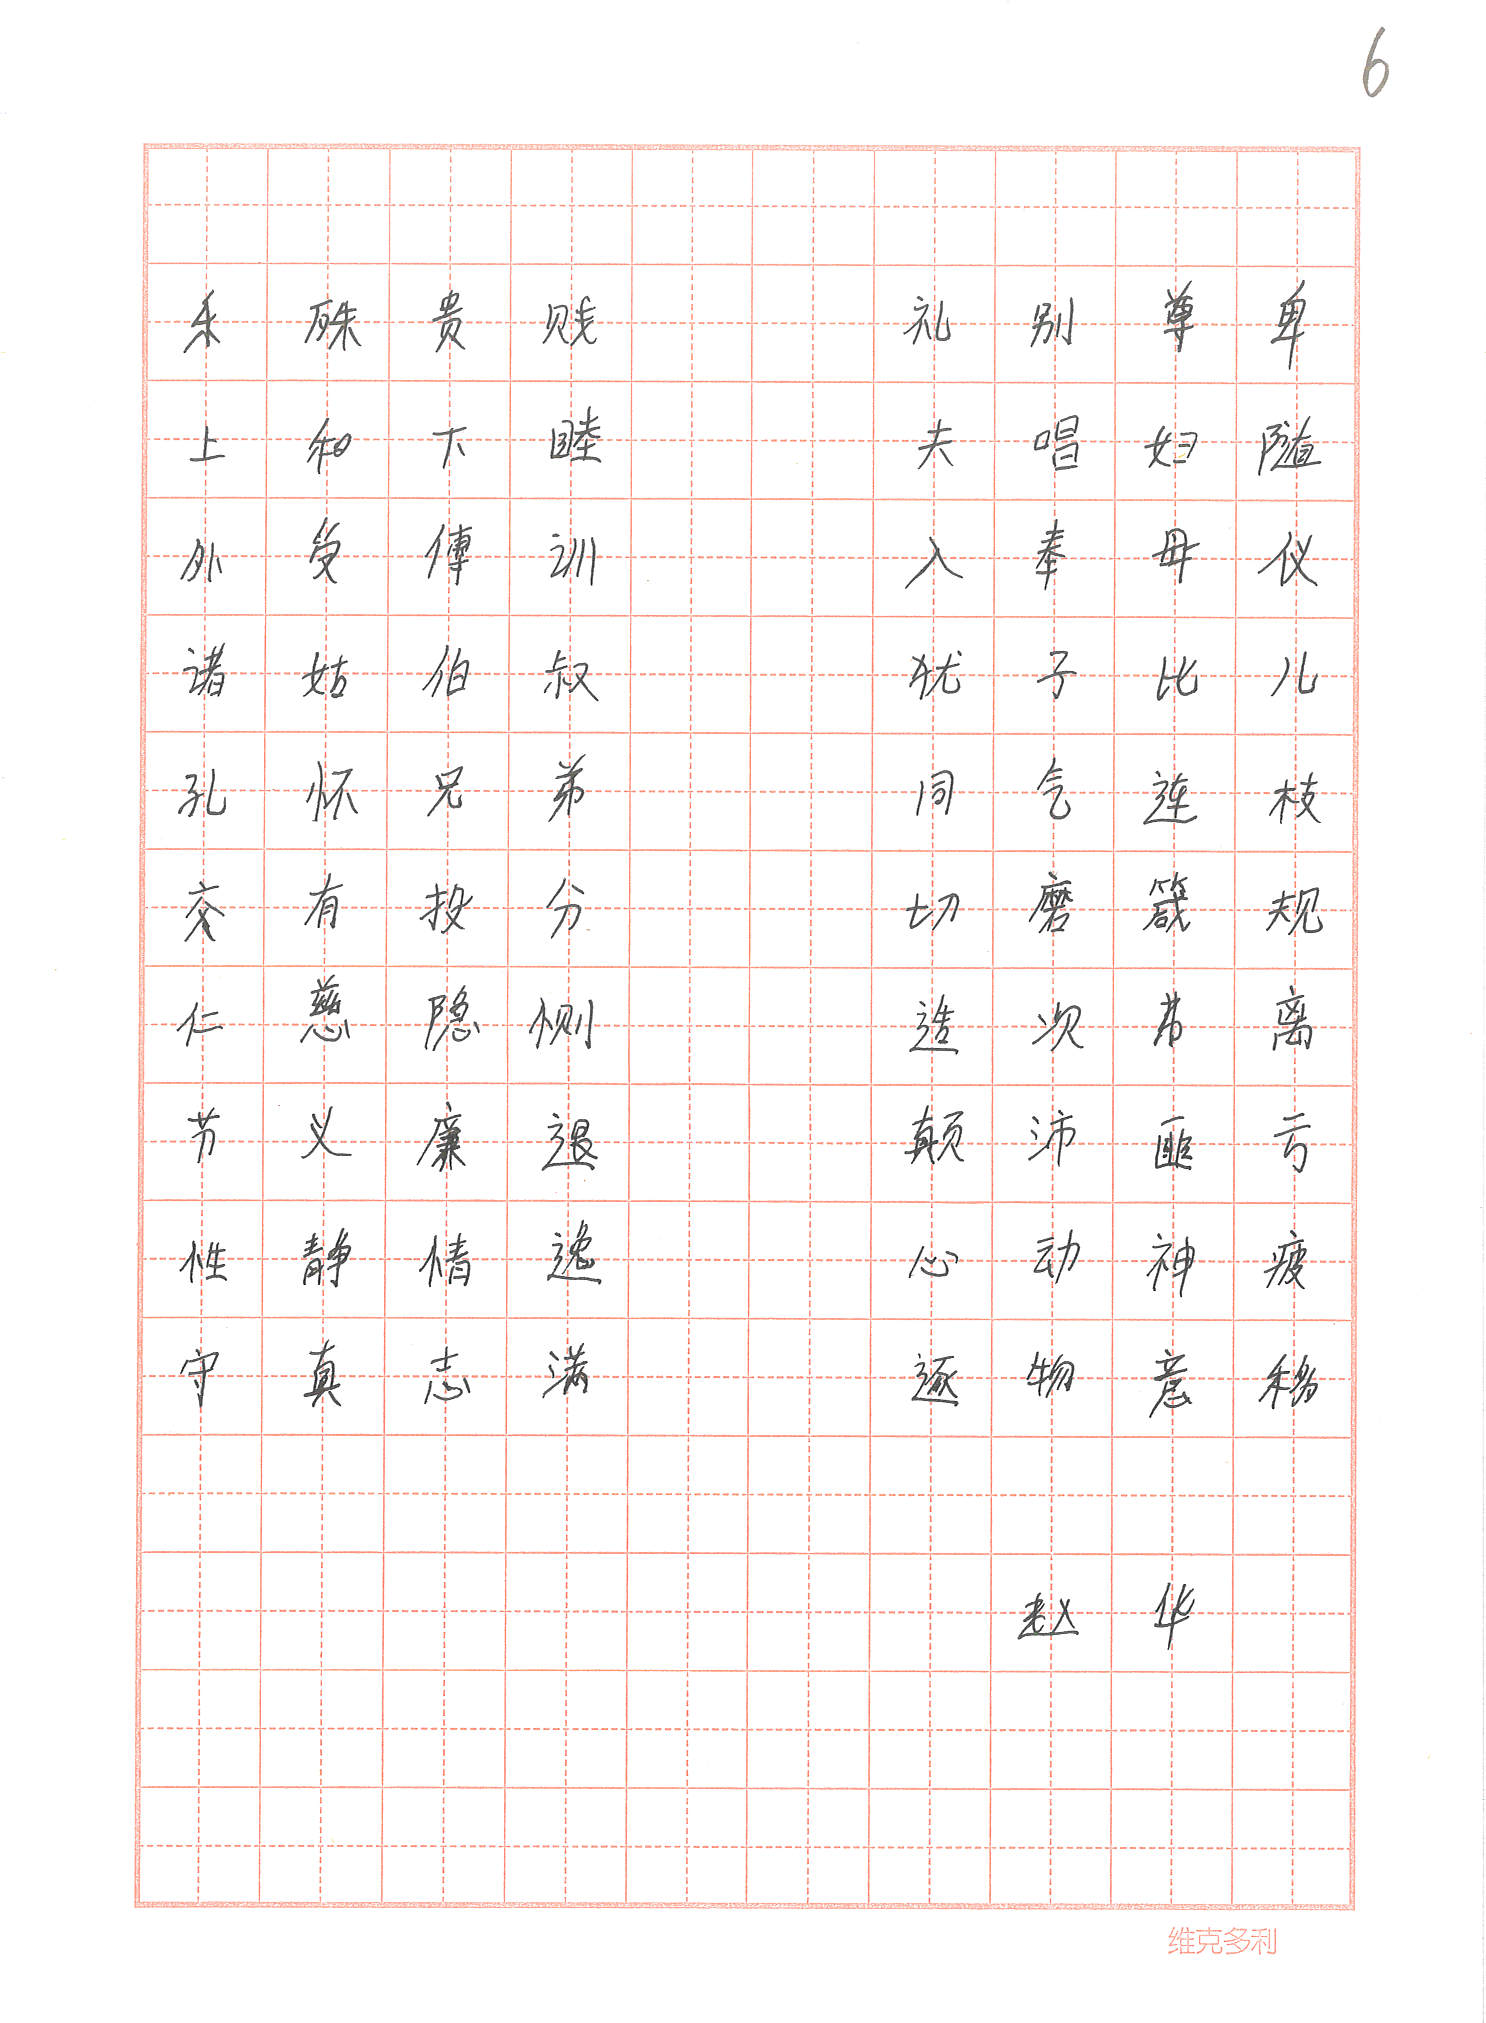 6
乐殊贵贱 礼别尊卑
上和下睦 夫唱妇随
外受傅训 入奉母仪
诸姑伯叔 犹子比儿
孔怀兄弟 同气连枝
交有投分 切磨箴规
仁慈隐恻 造次弗离
节义廉退 颠沛匪亏
性静情逸 心动神疲
守真志满 逐物意移
赵华
维克多利